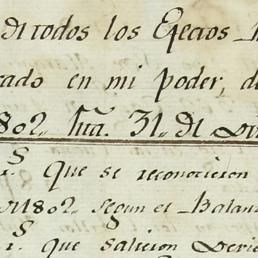 de todos los Efectos
en mi poder, de
1802 hta. 31. de
que se reconocieron
1802. segun el Balan
que salieron